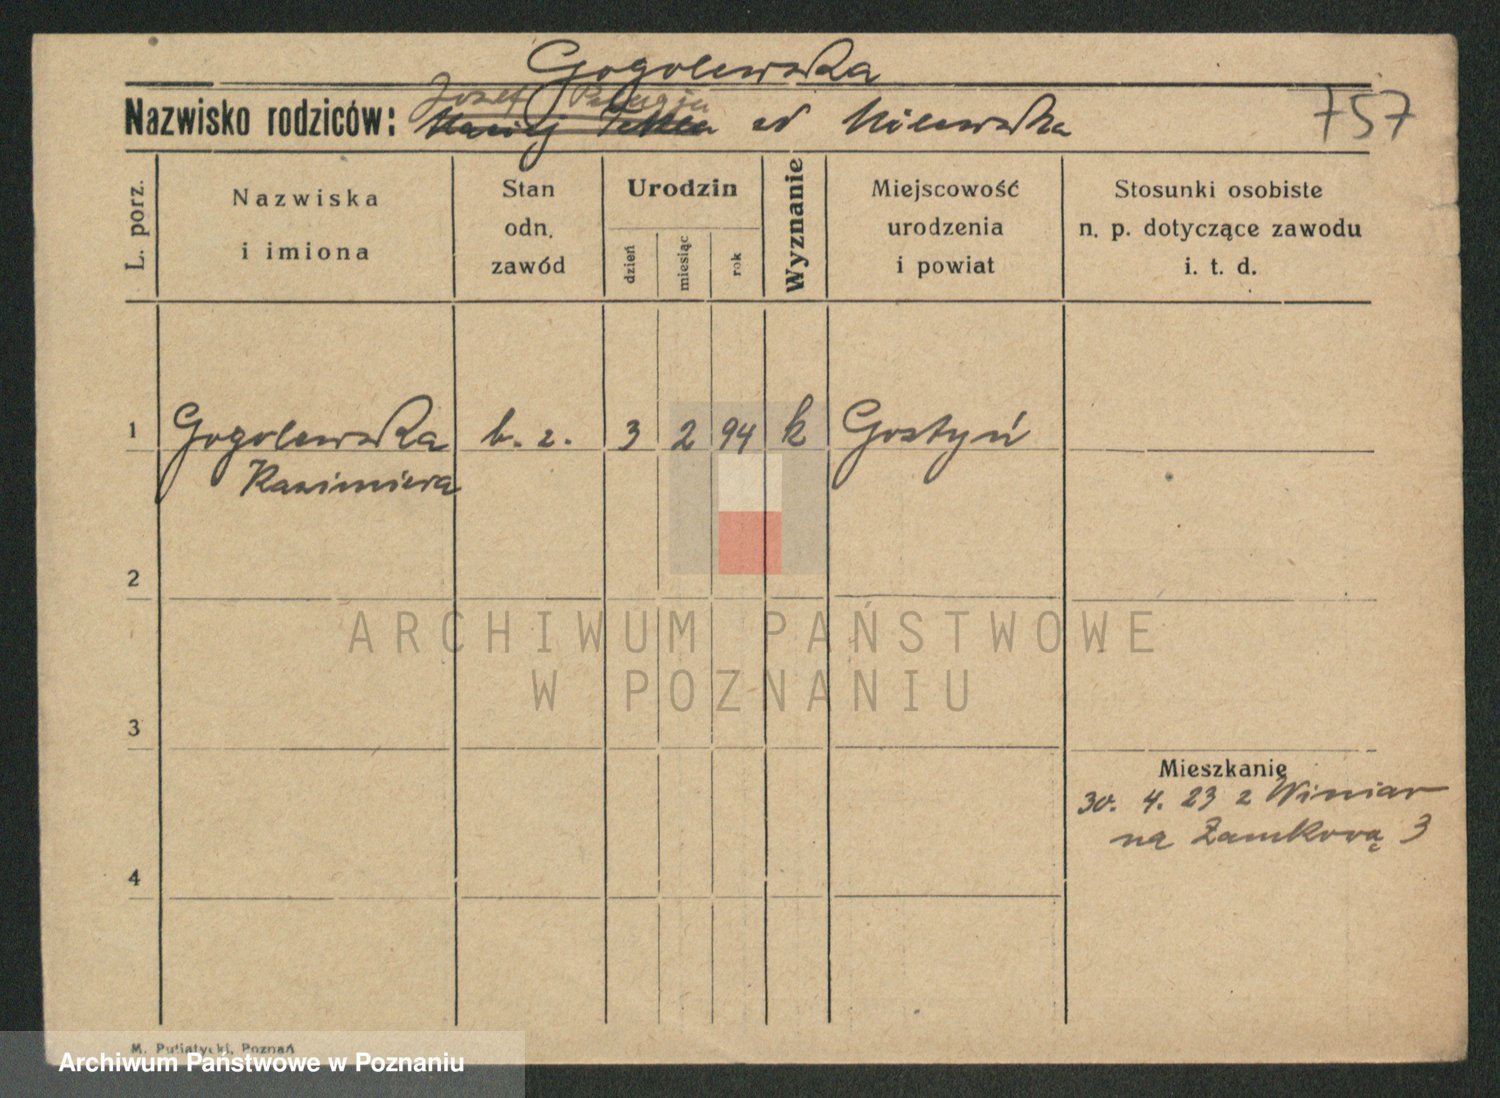 Gogolewska
Józef Pelagja
Nazwisko rodziców: Maciej Tekla od Milewska
757
L. porz.
Nazwiska
i imiona
Stan
odn.
zawód
Urodzin
dzień
miesiąc
rok
Wyznanie
Miejscowość
urodzenia
i powiat
Stosunki osobiste
n. p. dotyczące zawodu
i. t. d.
1 Gogolewska b. z. 3 2 94 k Gostyń
Kazimiera
2
ARCHIWUM PAŃSTWOWE
W POZNANIU
3
Mieszkanie
30. 4. 23 z Winiar
na Zamkową 3
4
M. Putiatycki, Poznań
Archiwum Państwowe w Poznaniu